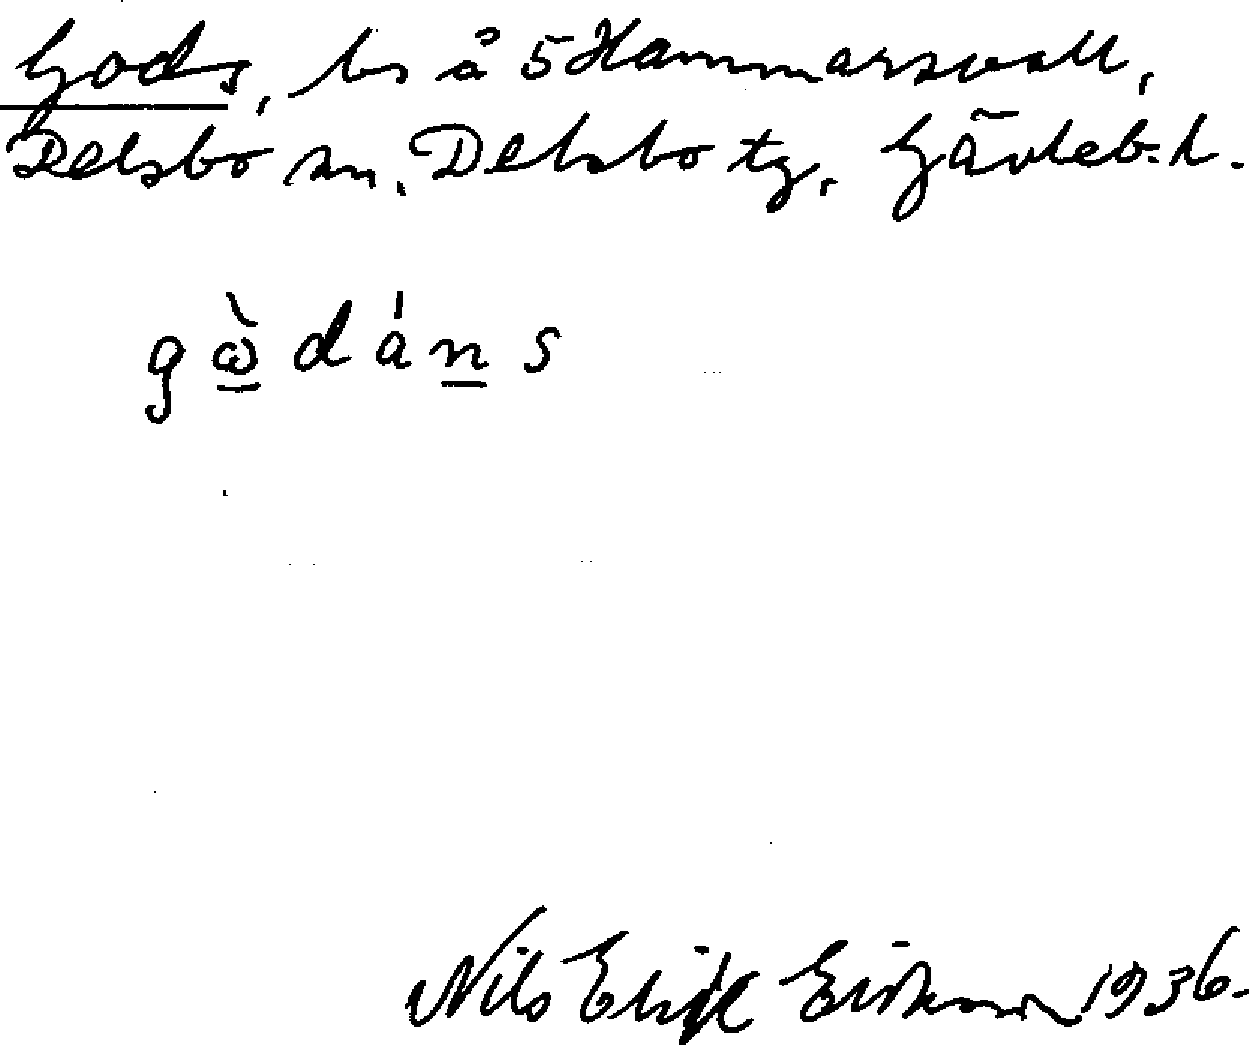 Gods, bs å 5 Hammarsvall,
Delsbo sn. Delsbo tg, Gävleb. l.
gὼ̲dán̲s
Nils Erik Eriksson 1936.